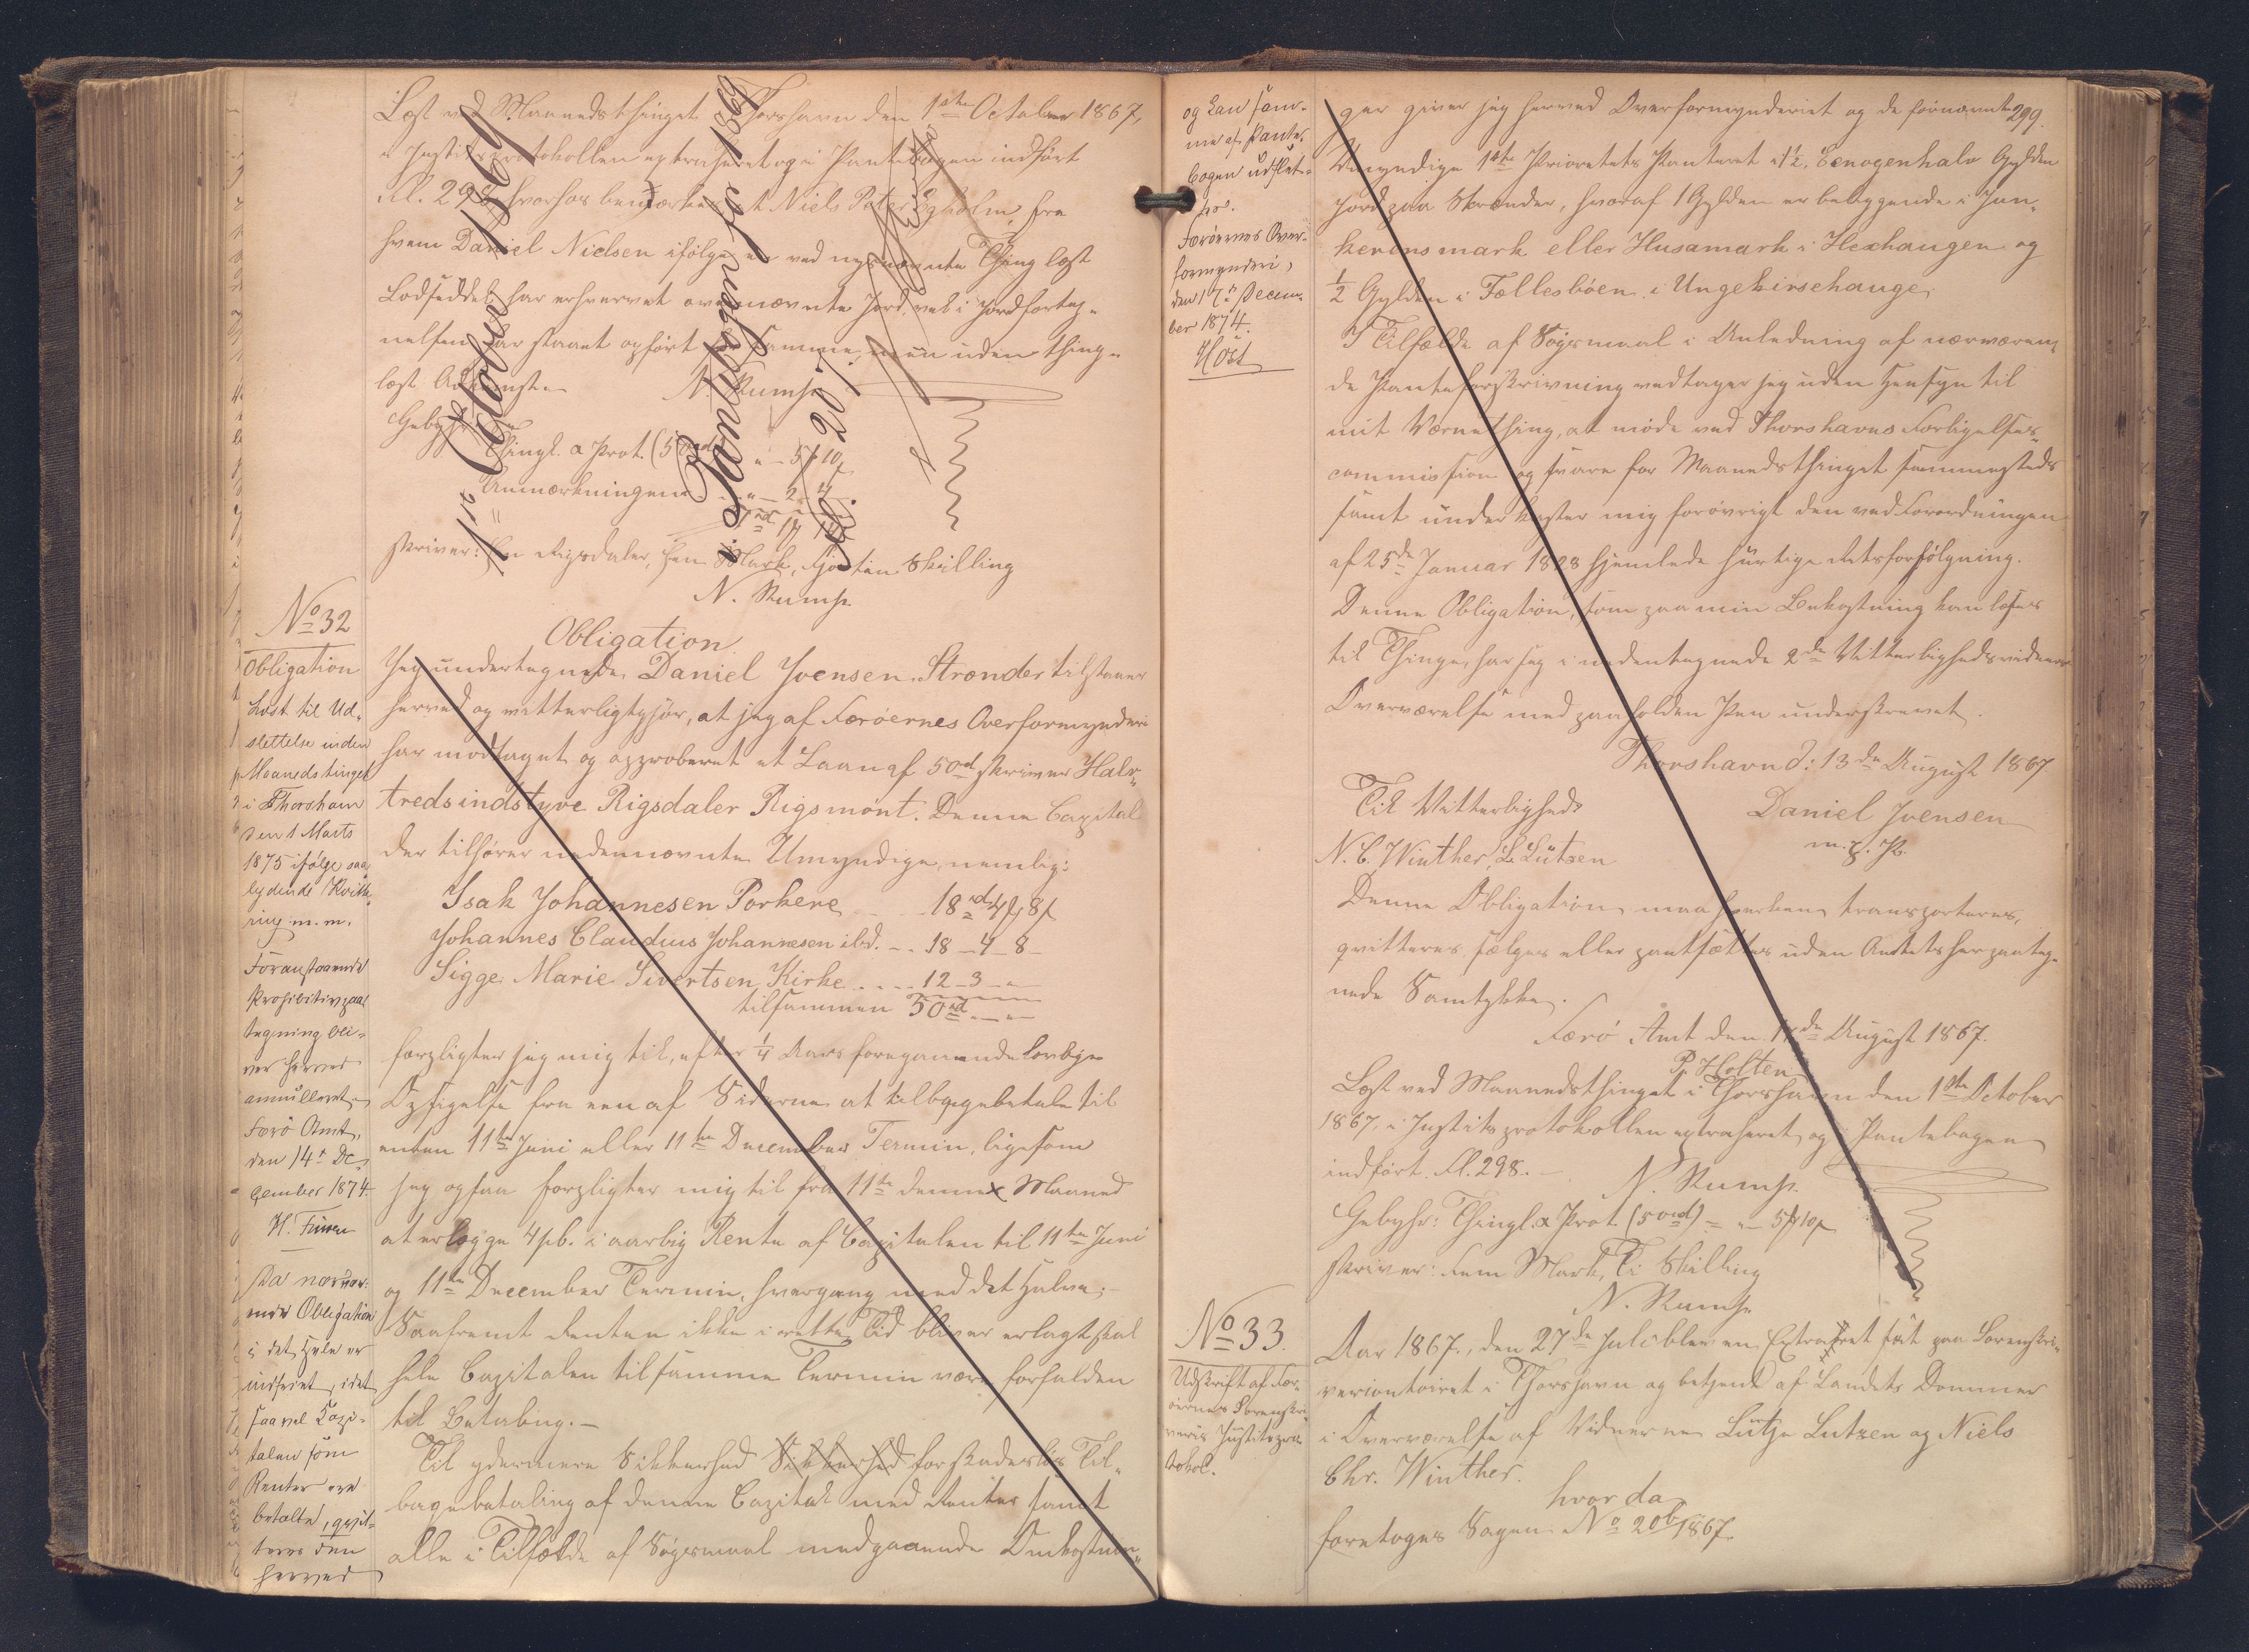 Læst ved Maanedsthinget i Thorshavn den 1ste October 1867,
i Justitsprotokollen extraheret og i Pantebogen indført
Fol. 298, hvorhos bemærkes at Niels Peter Egholm, fra
hvem Daniel Nielsen ifølge en ved nysnævnte Thing læst
Lodseddel har erhvervet ovennævnte Jord, vel i Jordforteg-
nelsen har staaet opført for samme, men uden thing-
læst Adkomst.
N. Rump
Gebyhr:
Thingl. & Prot. (50rd) " - 5 10
Anmærkningen " - 2 - 4
1rd 1 14
skriver: Een Rigsdaler, Een Mark, Fjorten Skilling
N. Rump
1ste October 1869
i Pantebogen for 1869
Fol. 207.
No 32
Obligation
Læst til Ud-
slettelse inden
Maanedstinget
i Thorshavn
den 1 Marts
1875 ifølge saa-
lydende Kvitte-
ring m.m.
Foranstaaende
Prohibitivpaa-
tegning bli-
ver herved
annulleret.
Færø Amt,
den 14de De-
cember 1874.
H. Finsen
Da nærvær-
ende Obligation
i det Hele er
indfriet, idet
saavel Capi-
talen som
Renter ere
betalte, qvit-
teres den
herved
Obligation
Jeg undertegnede Daniel Joensen, Strænder tilstaaer
herved og vitterliggjør, at jeg af Færöernes Overformynderi
har modtaget og approberet et Laan af 50rd skriver Halv-
tredsindstyve Rigsdaler Rigsmønt. Denne Capital
der tilhører nedennævnte Umyndige, nemlig:
Isak Johannesen Porkere - - 18rd 4 8
Johannes Claudius Johannesen ibd. - - 18 - 4 - 8 -
Sigge Marie Sivertsen, Kirke . . . . 12 - 3 - "
tilsammen 50rd - " -
forpligter jeg mig til, efter 1/4 Aars foregaaende lovlige
Opsigelse fra een af Siderne at tilbagebetale til
enten 11te Juni eller 11te December Termin, ligesom
jeg ogsaa forpligter mig til fra 11te dennes Maaned
at erlægge 4 pC. i aarlig Rente af Capitalen til 11te Juni
og 11te December Termin, hvergang med det Halve. -
Saafremt Renten ikke i rette Tid bliver erlagt skal
hele Capitalen til samme Termin være forfalden
til Betaling. -
Til ydermere Sikkerhed Sikkerhed for skadesløs Til-
bagebetaling af denne Capital med Renter samt
alle i Tilfælde af Søgsmaal medgaaende Omkostnin-
og kan sam-
me af Pante-
bogen udslet-
tes.
Færöernes Over-
formynderi,
den 17de Decem-
ber 1874.
Höst
299.
ger giver jeg herved Overformynderiet og de fornævnte
Umyndige 1ste Prioritets Panteret i 1½ Eenogenhalv Gylden
Jord paa Strænder, hvoraf 1 Gylden er beliggende i Jun-
kerensmark eller Husamark i Hexhaugen og
½ Gylden i Fællesbøen i Ungekirsehauge.
I Tilfælde af Søgsmaal i Anledning af nærværen-
de Panteforskrivning vedtager jeg uden Hensyn til
mit Værnething, at møde ved Thorshavns Forligelses-
commission og svare for Maanedsthinget sammesteds
samt underkaster mig forøvrigt den ved Forordningen
af 25de Januar 1828 hjemlede hurtige Retsforfølgning.
Denne Obligation, som paa min Bekostning kan læses
til Thinge, har jeg i nedentegnede 2de Vitterlighedsvidners
Overværelse med paaholden Pen underskrevet.
Thorshavn d: 13de August 1867.
Til Vitterlighed:
Daniel Joensen
m. p. P.
N. C. Winther, L. Lützen
Denne Obligation maa hverken transporteres,
qvitteres, sælges eller pantsættes uden Amtets herpaateg-
nede Samtykke.
Færö Amt den 14de August 1867.
P. Holten
Læst ved Maanedsthinget i Thorshavn den 1ste October
1867, i Justitsprotokollen extraheret og i Pantebogen
indført Fol. 298. -
N. Rump.
Gebyhr: Thingl. & Prot. (50rd) = " - 5 10
skriver: Fem Mark, Ti Skilling
N. Rump
No 33.
Udskrift af Fær-
øernes Sorenskri-
veris Justitspro-
tokol.
Aar 1867, den 27de Juli blev en Extraret sat paa Sorenskri-
vericontoiret i Thorshavn og betjent af Landets Dommer
i Overværelse af Vidnerne Lütje Lutzen og Niels
Chr. Winther.
hvor da
foretoges Sagen: No 20b/1867.